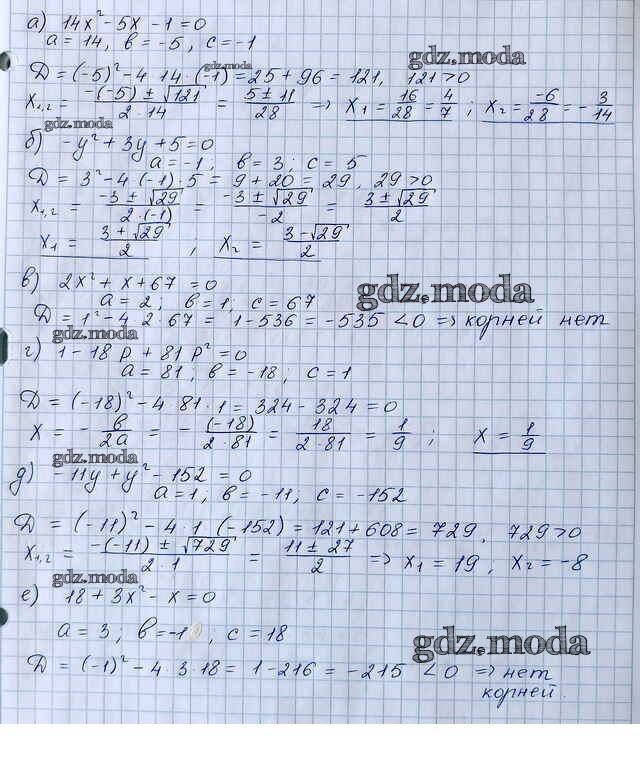 а) 14x² - 5x - 1 = 0
a = 14, в = -5, c = -1
gdz.moda
Д = (-5)² - 4 · 14 · (-1) = 25 + 96 = 121, 121 > 0
gdz.moda
x₁,₂ = (-(-5) ± √121) / (2 · 14) = (5 ± 11) / 28 => x₁ = 16/28 = 4/7 ; x₂ = -6/28 = -3/14
gdz.moda
б) -y² + 3y + 5 = 0
a = -1, в = 3; c = 5
Д = 3² - 4 · (-1) · 5 = 9 + 20 = 29, 29 > 0
x₁,₂ = (-3 ± √29) / (2 · (-1)) = (-3 ± √29) / -2 = (3 ± √29) / 2
x₁ = (3 + √29) / 2 , x₂ = (3 - √29) / 2
в) 2x² + x + 67 = 0
gdz.moda
a = 2; в = 1, c = 67
Д = 1² - 4 · 2 · 67 = 1 - 536 = -535 < 0 => корней нет
gdz.moda
г) 1 - 18p + 81p² = 0
a = 81; в = -18; c = 1
Д = (-18)² - 4 · 81 · 1 = 324 - 324 = 0
x = - в/2a = - (-18)/(2 · 81) = 18/(2 · 81) = 1/9 ; x = 1/9
gdz.moda
д) -11y + y² - 152 = 0
a = 1, в = -11, c = -152
Д = (-11)² - 4 · 1 · (-152) = 121 + 608 = 729, 729 > 0
x₁,₂ = (-(-11) ± √729) / (2 · 1) = (11 ± 27) / 2 => x₁ = 19, x₂ = -8
gdz.moda
е) 18 + 3x² - x = 0
a = 3; в = -1, c = 18
gdz.moda
Д = (-1)² - 4 · 3 · 18 = 1 - 216 = -215 < 0 => нет
корней.